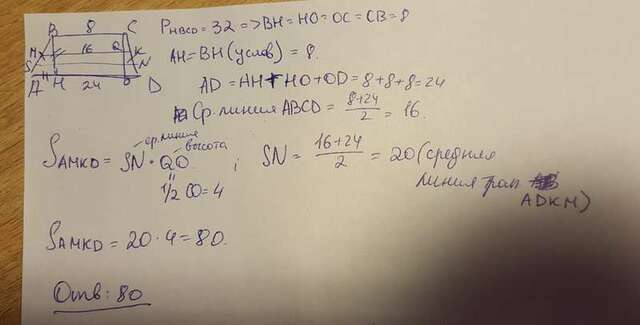 B 8 C
M 16 Q K
S N
A H 24 O D
Pнвсо = 32 => BH = HO = OC = CB = 8
AH = BH (услов) = 8.
AD = AH + HO + OD = 8+8+8 = 24
Ср. линия ABCD = 8+24/2 = 16.
ср. линия высота
SAMKD = SN · QO ; SN = 16+24/2 = 20 (средняя
линия трап
ADKM)
"
1/2 CO = 4
SAMKD = 20 · 4 = 80.
Отв: 80